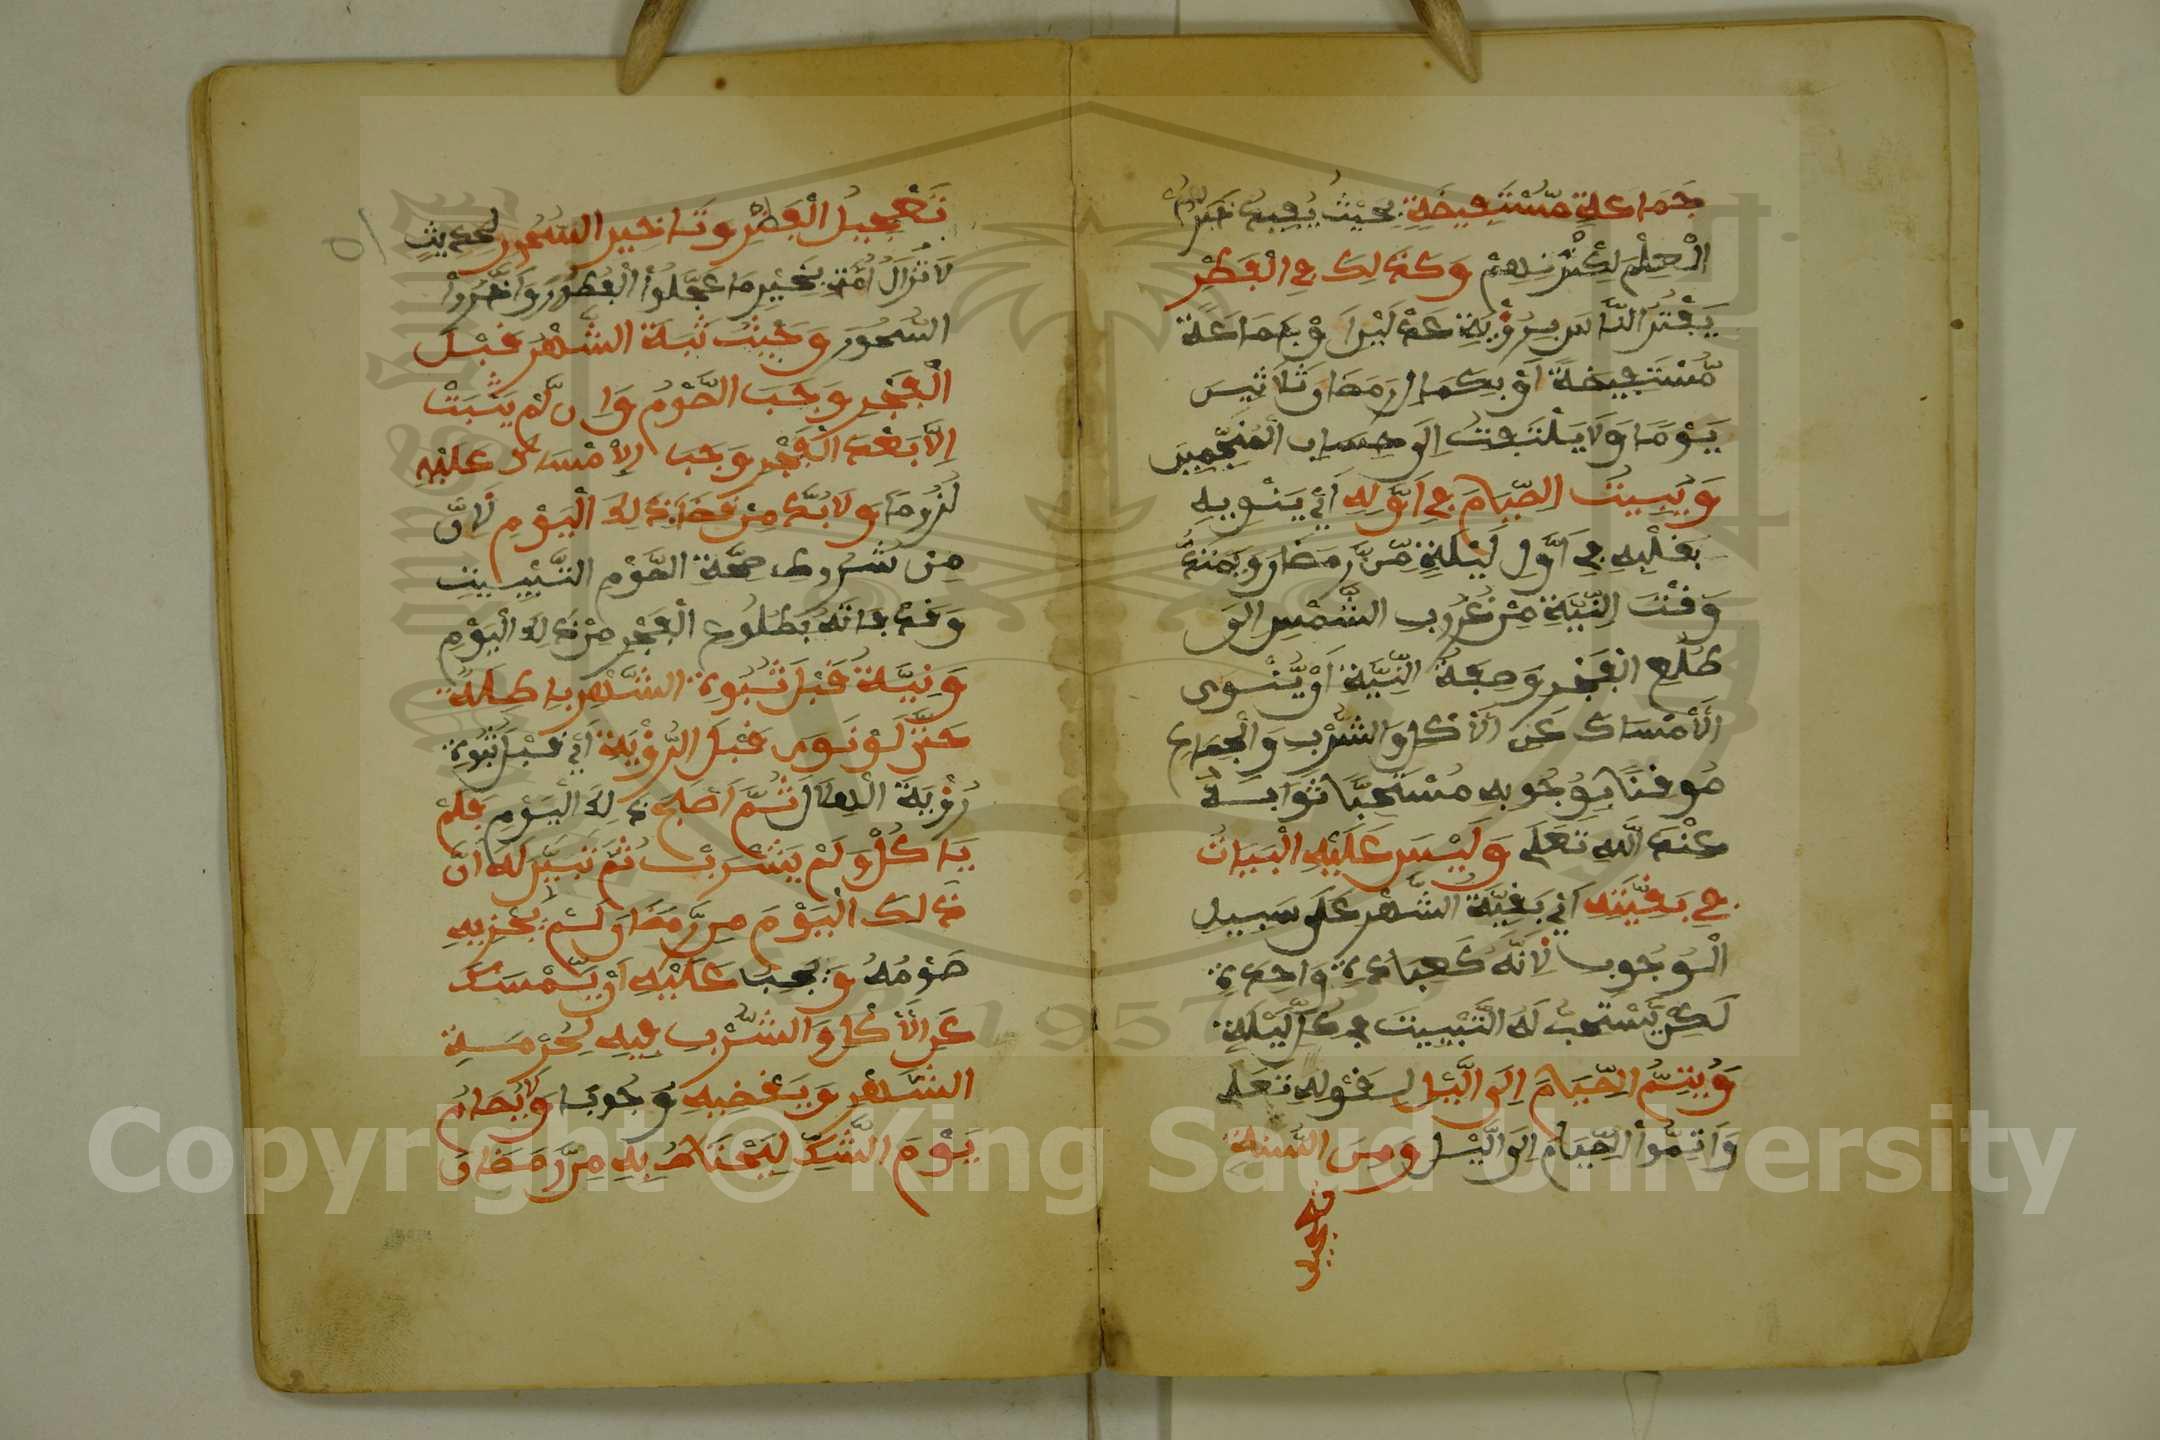 جَمَاعَةٍ مُّسْتَفِيضَةٍ بِحَيْثُ يُفِيدُ خَبَرُهُمُ
الْعِلْمَ لِكَثْرَتِهِمْ وَكَذَلِكَ فِي الْفِطْرِ
يَفْطُرُ النَّاسُ بِرُؤْيَةِ عَدْلَيْنِ أَوْ جَمَاعَةٍ
مُّسْتَفِيضَةً أَوْ بِكَمَالِ رَمَضَانَ ثَلَاثِينَ
يَوْمًا وَلَا يَلْتَفِتُ إِلَى حِسَابِ الْمُنَجِّمِينَ
وَيُبَيِّتُ الصِّيَامَ فِي أَوَّلِهِ أَيْ يَنْوِيهِ
بِقَلْبِهِ فِي أَوَّلِ لَيْلَةٍ مِّنْ رَّمَضَانَ وَيَمْتَدُّ
وَقْتُ النِّيَّةِ مِنْ غُرُوبِ الشَّمْسِ إِلَى
طُلُوعِ الْفَجْرِ وَصِفَةُ النِّيَّةِ أَنْ يَّنْوِيَ
الْأِمْسَاكَ عَنِ الْأَكْلِ وَالشُّرْبِ وَالْجِمَاعِ
مُوقِنًا بِوُجُوبِهِ مُحْتَسِبًا ثَوَابَهُ
عِنْدَ اللَّهِ تَعَلَى وَلَيْسَ عَلَيْهِ الْبَيَاتُ
فِي بَقِيَّتِهِ أَيْ بَقِيَّةِ الشَّهْرِ عَلَى سَبِيلِ
الْوُجُوبِ لِأَنَّهُ كَعِبَادَةٍ وَاحِدَةٍ
لَكِنْ يُّسْتَحَبُّ لَهُ التَّبْيِيتُ فِي كُلِّ لَيْلَةٍ
وَيُتِمُّ الصِّيَامَ إِلَى اللَّيْلِ لِقَوْلِهِ تَعَلَى
وَأَتِمُّوا الصِّيَامَ إِلَى اللَّيْلِ وَمِنَ السُّنَّةِ
تعجيل
تَعْجِيلُ الْفِطْرِ وَتَاخِيرُ السُّحُورِ لِحَدِيثِ
لَا تَزَالُ أُمَّتِي بِخَيْرٍ مَا عَجَّلُوا الْفُطُورَ وَأَخَّرُوا
السُّحُورَ وَحَيْثُ ثَبَتَ الشَّهْرُ قَبْلَ
الْفَجْرِ وَجَبَ الصَّوْمُ وَإِن لَّمْ يَثْبَتْ
إِلَّا بَعْدَ الْفَجْرِ وَجَبَ الْإِمْسَاكُ عَلَيْهِ
لُزُومًا وَلَا بُدَّ مِنْ قَضَاءِ ذَلِكَ الْيَوْمِ لِأَنَّ
مِنْ شُرُوطِ صِحَّةِ الصَّوْمِ التَّبْيِيتَ
وَقَدْ فَاتَهُ بِطُلُوعِ الْفَجْرِ مِنْ ذَلِكَ الْيَوْمِ
وَنِيَّةٌ قَبْلَ ثُبُوتِ الشَّهْرِ بَاطِلَةٌ
حَتَّى لَوْ نَوَى قَبْلَ الرُّؤْيَةِ أَيْ قَبْلَ ثُبُوتِ
رُؤْيَةِ الْهِلَالِ ثُمَّ أَصْبَحَ ذَلِكَ الْيَوْمِ فَلَمْ
يَاكُلْ وَلَمْ يَشْرَبْ ثُمَّ تَبَيَّنَ لَهُ أَنَّ
ذَلِكَ الْيَوْمَ مِن رَّمَضَانَ لَمْ يُجْزِيهِ
صَوْمُهُ وَيَجِبُ عَلَيْهِ أَنْ يُّمْسِكَ
عَنِ الْأَكْلِ وَالشُّرْبِ فِيهِ لِحُرْمَةِ
الشَّهْرِ وَيَقْضِيهِ وُجُوبًا وَلَا يُصَامُ
يَوْمَ الشَّكِّ لِيَحْتَاطَ بِهِ مِنْ رَّمَضَانَ